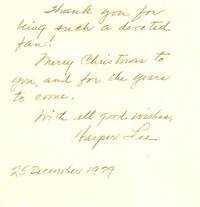 Thank you for
being such a devoted
fan!
Merry Christmas to
you, and for the years
to come.
With all good wishes,
Harper Lee
25 December 1979